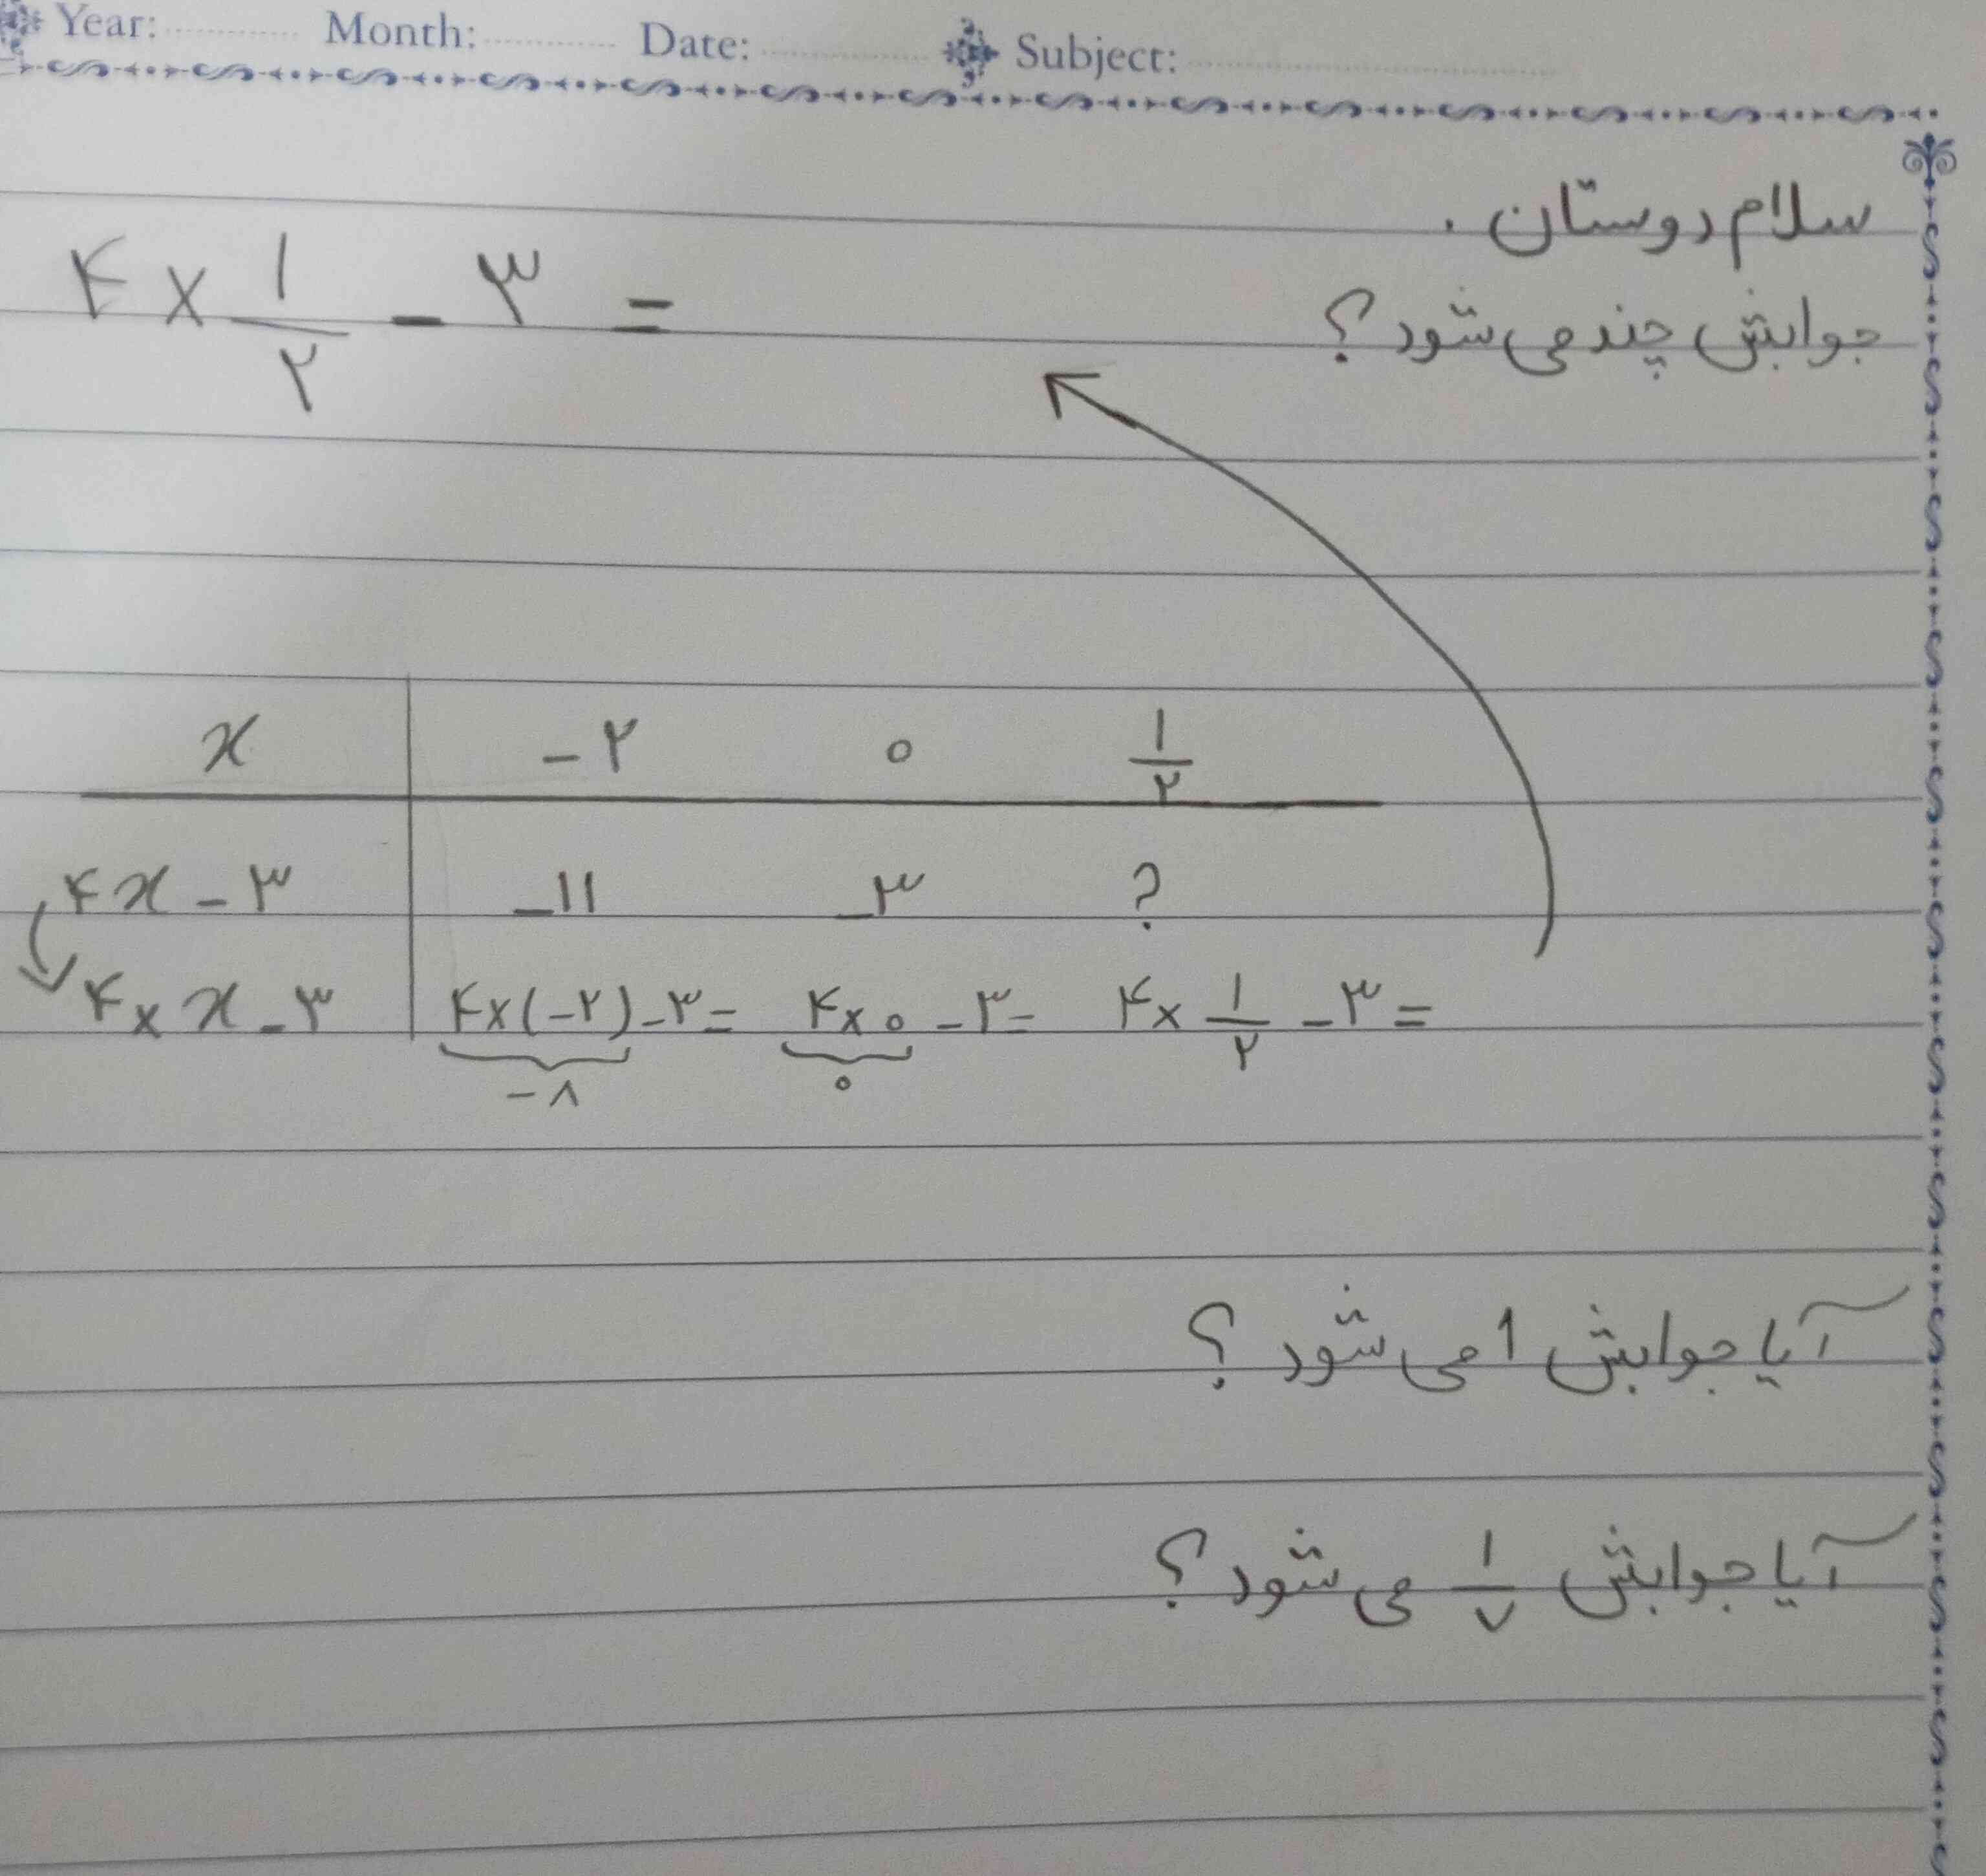 Year: Month: Date: Subject:
سلام دوستان .
جوابش چند می شود ؟
۴ × ۱/۲ - ۳ =
x -۲ ۰ ۱/۲
۴x - ۳ -۱۱ -۳ ?
۴ × x - ۳ ۴×(-۲)-۳= ۴×۰-۳= ۴× ۱/۲ -۳=
-۸ ۰
آیا جوابش 1 می شود ؟
آیا جوابش ۱/۷ می شود ؟